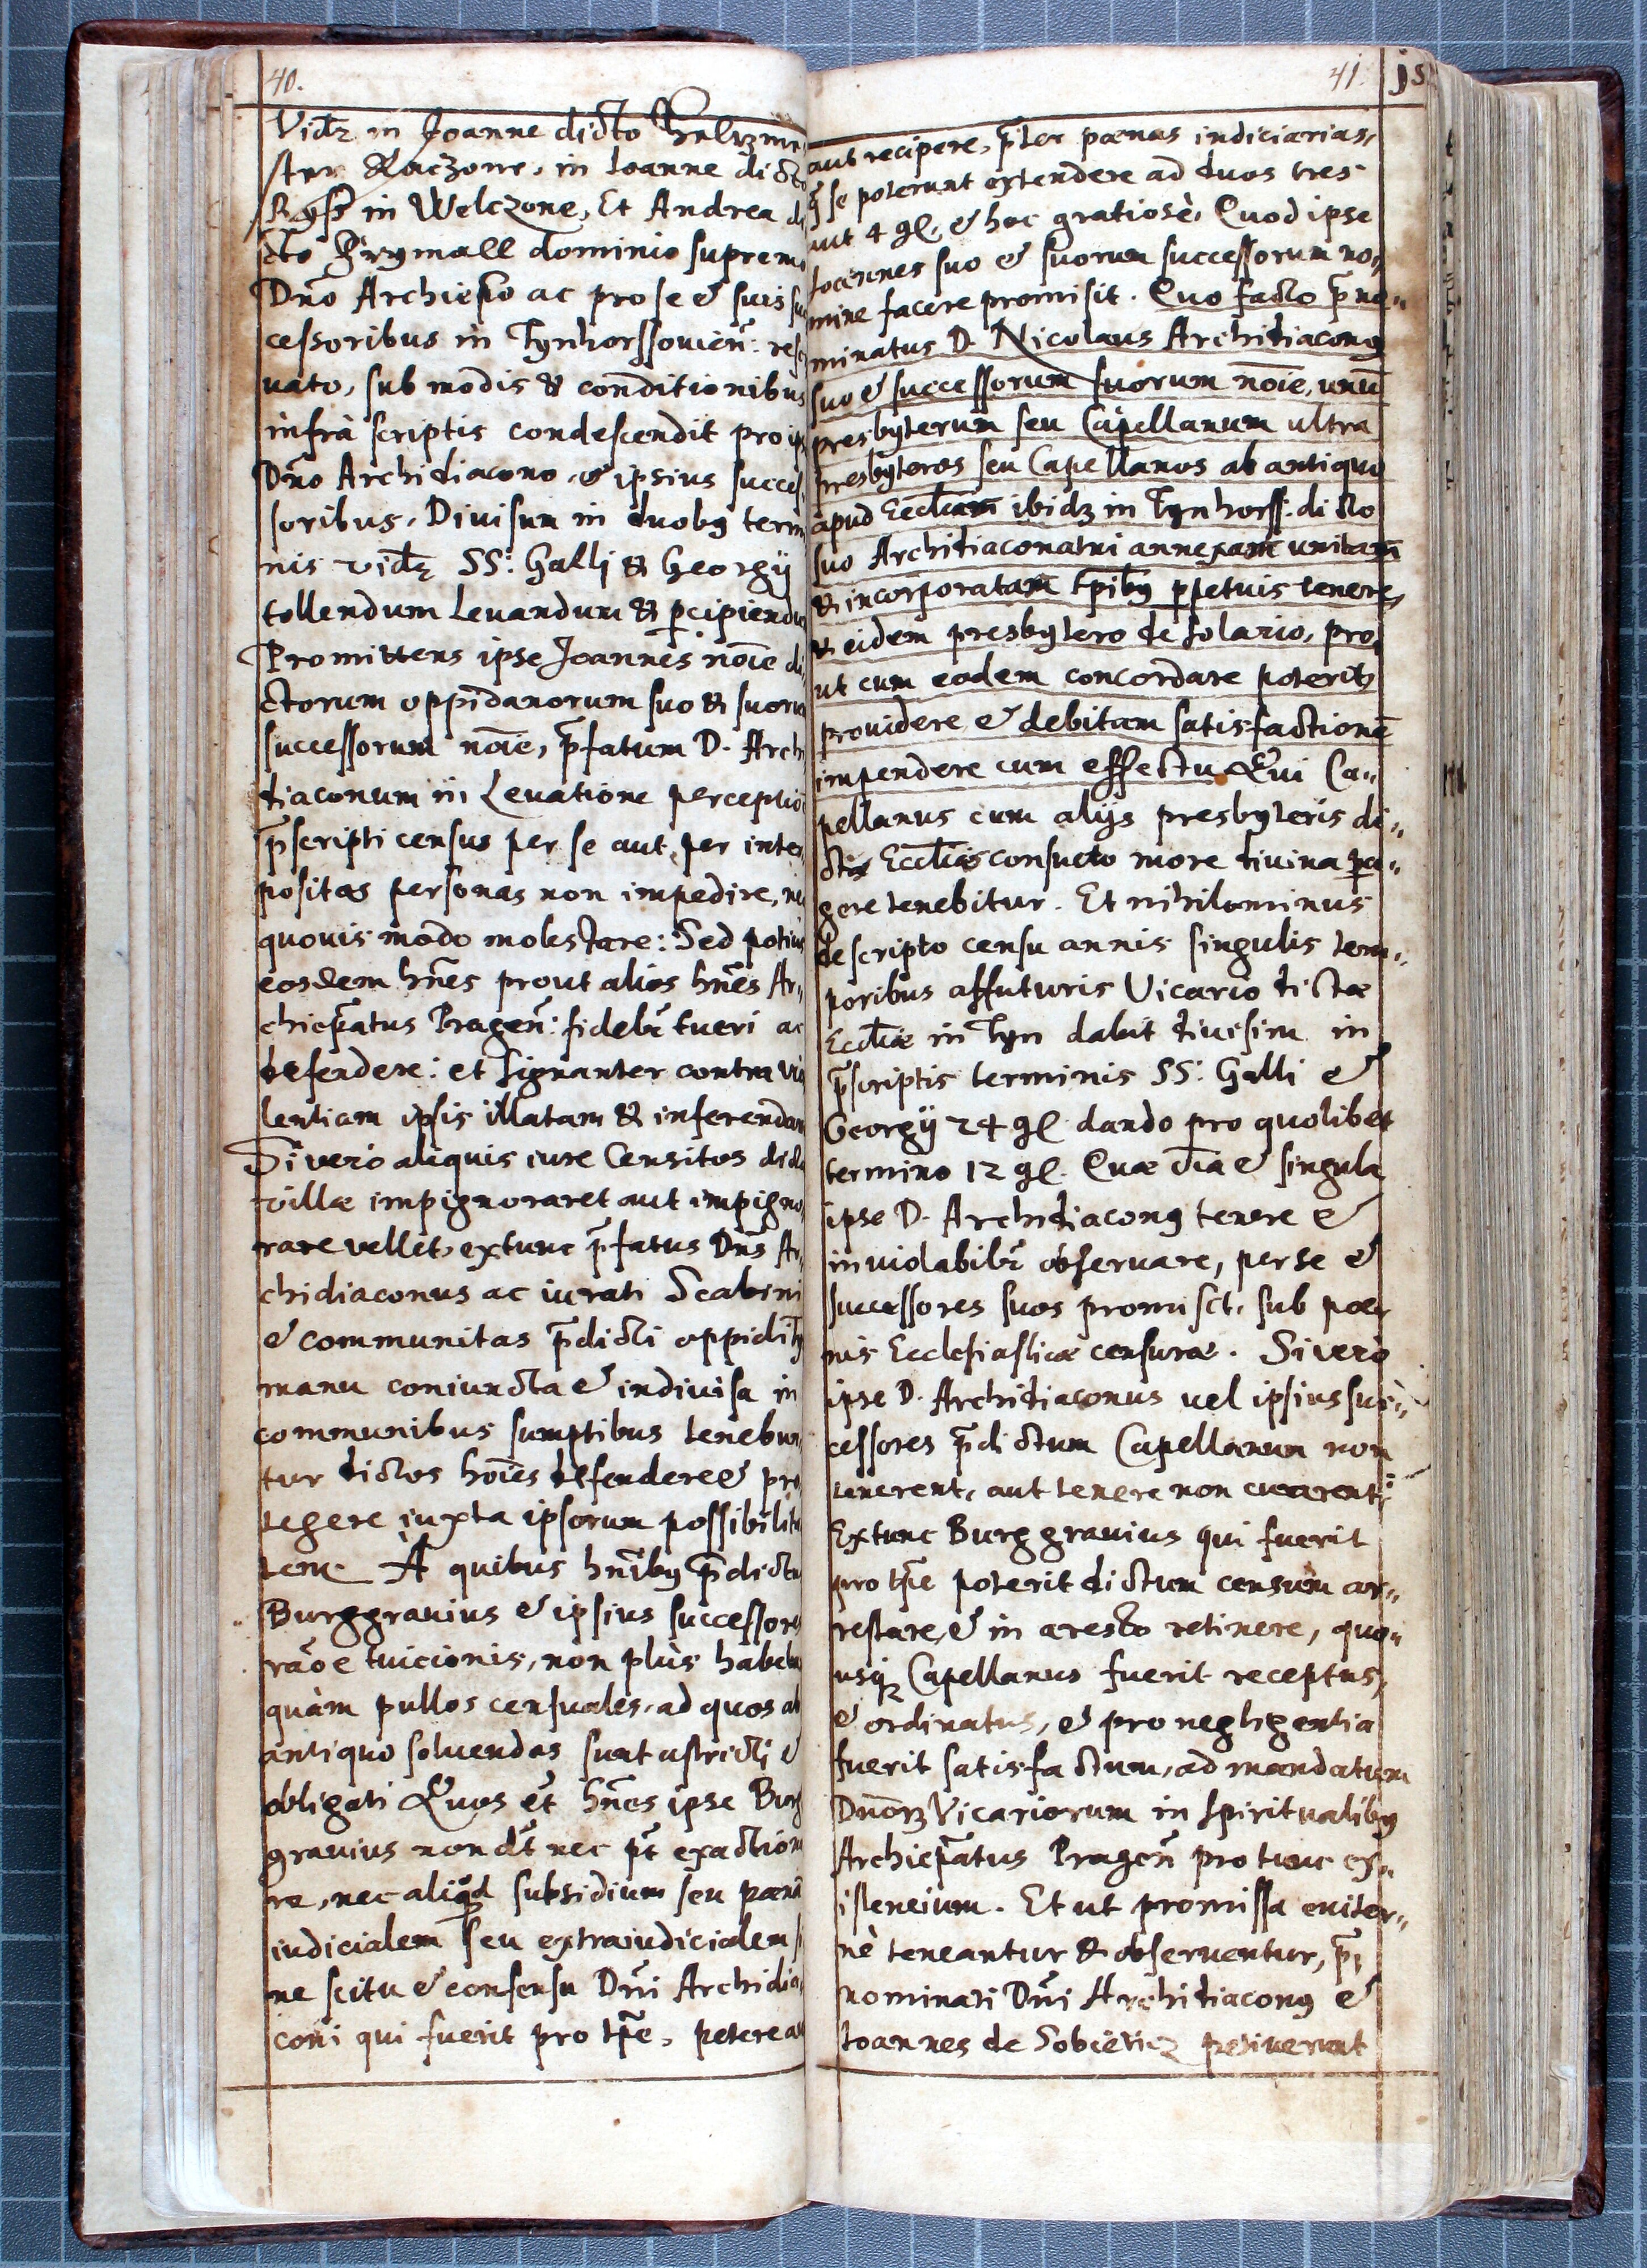 40.
Vidz in Joanne dicto
ster Raczone, in Ioanne dicto
Ryss in Welczone, Et Andrea di
cto Przymall dominio supremo
Dño Archiepõ ac pro se & suis suc
cessoribus in Tynhorssovien: reser
uato, sub modis & conditionibus
infrà scriptis condescendit pro ipso
Dño Archidiacono, & ipsius succes
soribus, Diuisum in duobg termi
nis vidz SS: Galli & Georgij
tollendum Leuandum & pcipiendum
Promittens ipse Joannes nõie di
ctorum oppidanorum suo & suorum
successorum nõie, p̃fatum D. Archi
diaconum in Leuatione perceptiõe
p̃scripti census per se aut per inter
positas personas non impedire, nec
quouis modo molestare: Sed potius
eosdem hñes prout alios hñes Ar,
chiep̃atus Pragen: fidelr̃ tueri ac
defendere: et signanter contra vio
lentiam ipsis illatam & inferendam
Si vero aliquis iure Censitos dictæ
villæ impignoraret aut impigno,
rare vellet, extunc p̃fatus Dñs Ar,
chidiaconus ac iurati Scabini
& communitas p̃dicti oppidi Tyn
manu coniuncta & indiuisa in
communibus sumptibus tenebun,
tur dictos hoĩes defendere & pro
tegere iuxta ipsorum possibilita
tem. A quibus hñibg p̃dictus
Burggrauius & ipsius successores
rãoe tuicionis, non plùs habebu
quàm pullos censuales, ad quos ab
antiquo soluendos sunt astricti &
obligati Quos et̃ hñes ipse Burg
grauius non dt̃ nec pt̃ exactiona
re, nec aliqd subsidium seu pœnã
iudicialem seu extraiudicialem si
ne scitu & consensu Dñi Archidia,
coni qui fuerit pro tp̃e, petere aut
41. js
aut recipere, p̃ter pœnas iudiciarias,
q̃ se poterunt extendere ad duos tres
aut 4 gl, & hoc gratiosè, Quod ipse
Ioannes suo & suorum successorum no,
mine facere promisit. Quo facto p̃no"
minatus D. Nicolaus Archidiacong
suo & successorum suorum nõie, unũ
presbyterum seu Capellanum ultra
presbyteros seu Capellanos ab antiquo
apud Eccliam ibidz in Tynhorss: dicto
suo Archidiaconatui annexam unitam
& incorporatam tp̃ibg ppetuis tenere,
& eidem presbytero de solario, pro,
ut cum eodem concordare poterit,
prouidere & debitam satisfactionẽ
impendere cum effectu Qui Ca"
pellanus cum alijs presbyteris di"
ctæ Eccliæ consueto more diuina pa"
gere tenebitur. Et nihilominus
de scripto censu annis singulis tem"
poribus affuturis Vicario dictæ
Eccliæ in Tyn dabit diuisim in
p̃scriptis terminis SS: Galli &
Georgij 24 gl dando pro quolibet
termino 12 gl. Quæ oĩa & singula
ipse D. Archidiacong tenere &
inuiolabilr̃ obseruare, per se &
successores suos promisit, sub pœ,
nis Ecclesiasticæ censuræ. Si verò
ipse D. Archidiaconus vel ipsius suc"
cessores p̃dictum Capellanum non
tenerent, aut tenere non curarent:
Extunc Burggrauius qui fuerit
pro tp̃e poterit dictum censum ar"
restare, & in aresto retinere, quo"
usq; Capellanus fuerit receptus,
& ordinatus, & pro negligentia
fuerit satisfactum, ad mandatum
Dñorz Vicariorum in spiritualibg
Archiep̃atus Pragen̄ pro tunc ex"
istencium. Et ut promissa euiter"
nè teneantur & obseruentur, p̃,
nominati Dñi Archidiacong &
Ioannes de Sobieticz petiuerunt